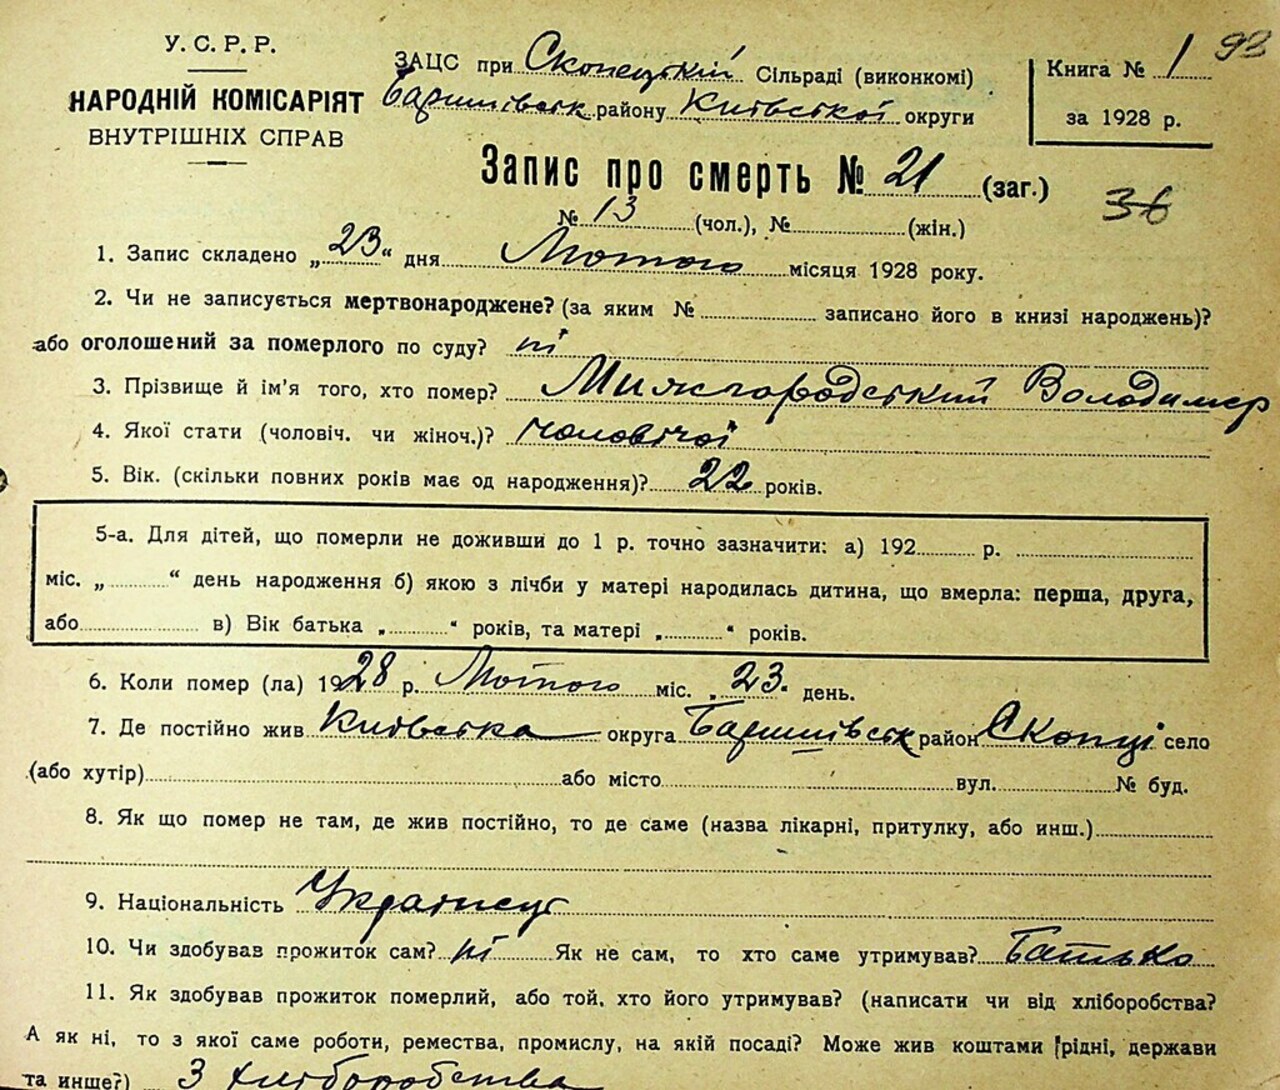 У. С. Р. Р.
НАРОДНІЙ КОМІСАРІЯТ
ВНУТРІШНІХ СПРАВ
ЗАЦС при Скопецькій Сільраді (виконкомі)
Баришівськ району Київської округи
Книга № 1 93
за 1928 р.
Запис про смерть № 21 (заг.)
36
№ 13 (чол.), № (жін.)
1. Запис складено „23“ дня Лютого місяця 1928 року.
2. Чи не записується мертвонароджене? (за яким № записано його в книзі народжень)?
або оголошений за померлого по суду? ні
3. Прізвище й ім'я того, хто помер? Миягородський Володимер
4. Якої стати (чоловіч. чи жіноч.)? чоловічої
5. Вік. (скільки повних років має од народження)? 22 років.
5-а. Для дітей, що померли не доживши до 1 р. точно зазначити: а) 192 р.
міс. „ “ день народження б) якою з лічби у матері народилась дитина, що вмерла: перша, друга,
або в) Вік батька „ “ років, та матері „ “ років.
6. Коли помер (ла) 1928 р. Лютого міс. „23“ день.
7. Де постійно жив Київська округа Баришівськ район Скопці село
(або хутір) або місто вул. № буд.
8. Як що помер не там, де жив постійно, то де саме (назва лікарні, притулку, або инш.)
9. Національність Українец
10. Чи здобував прожиток сам? ні Як не сам, то хто саме утримував? Батько
11. Як здобував прожиток померлий, або той, хто його утримував? (написати чи від хліборобства?
А як ні, то з якої саме роботи, ремества, промислу, на якій посаді? Може жив коштами рідні, держави
та инше?) З хліборобства